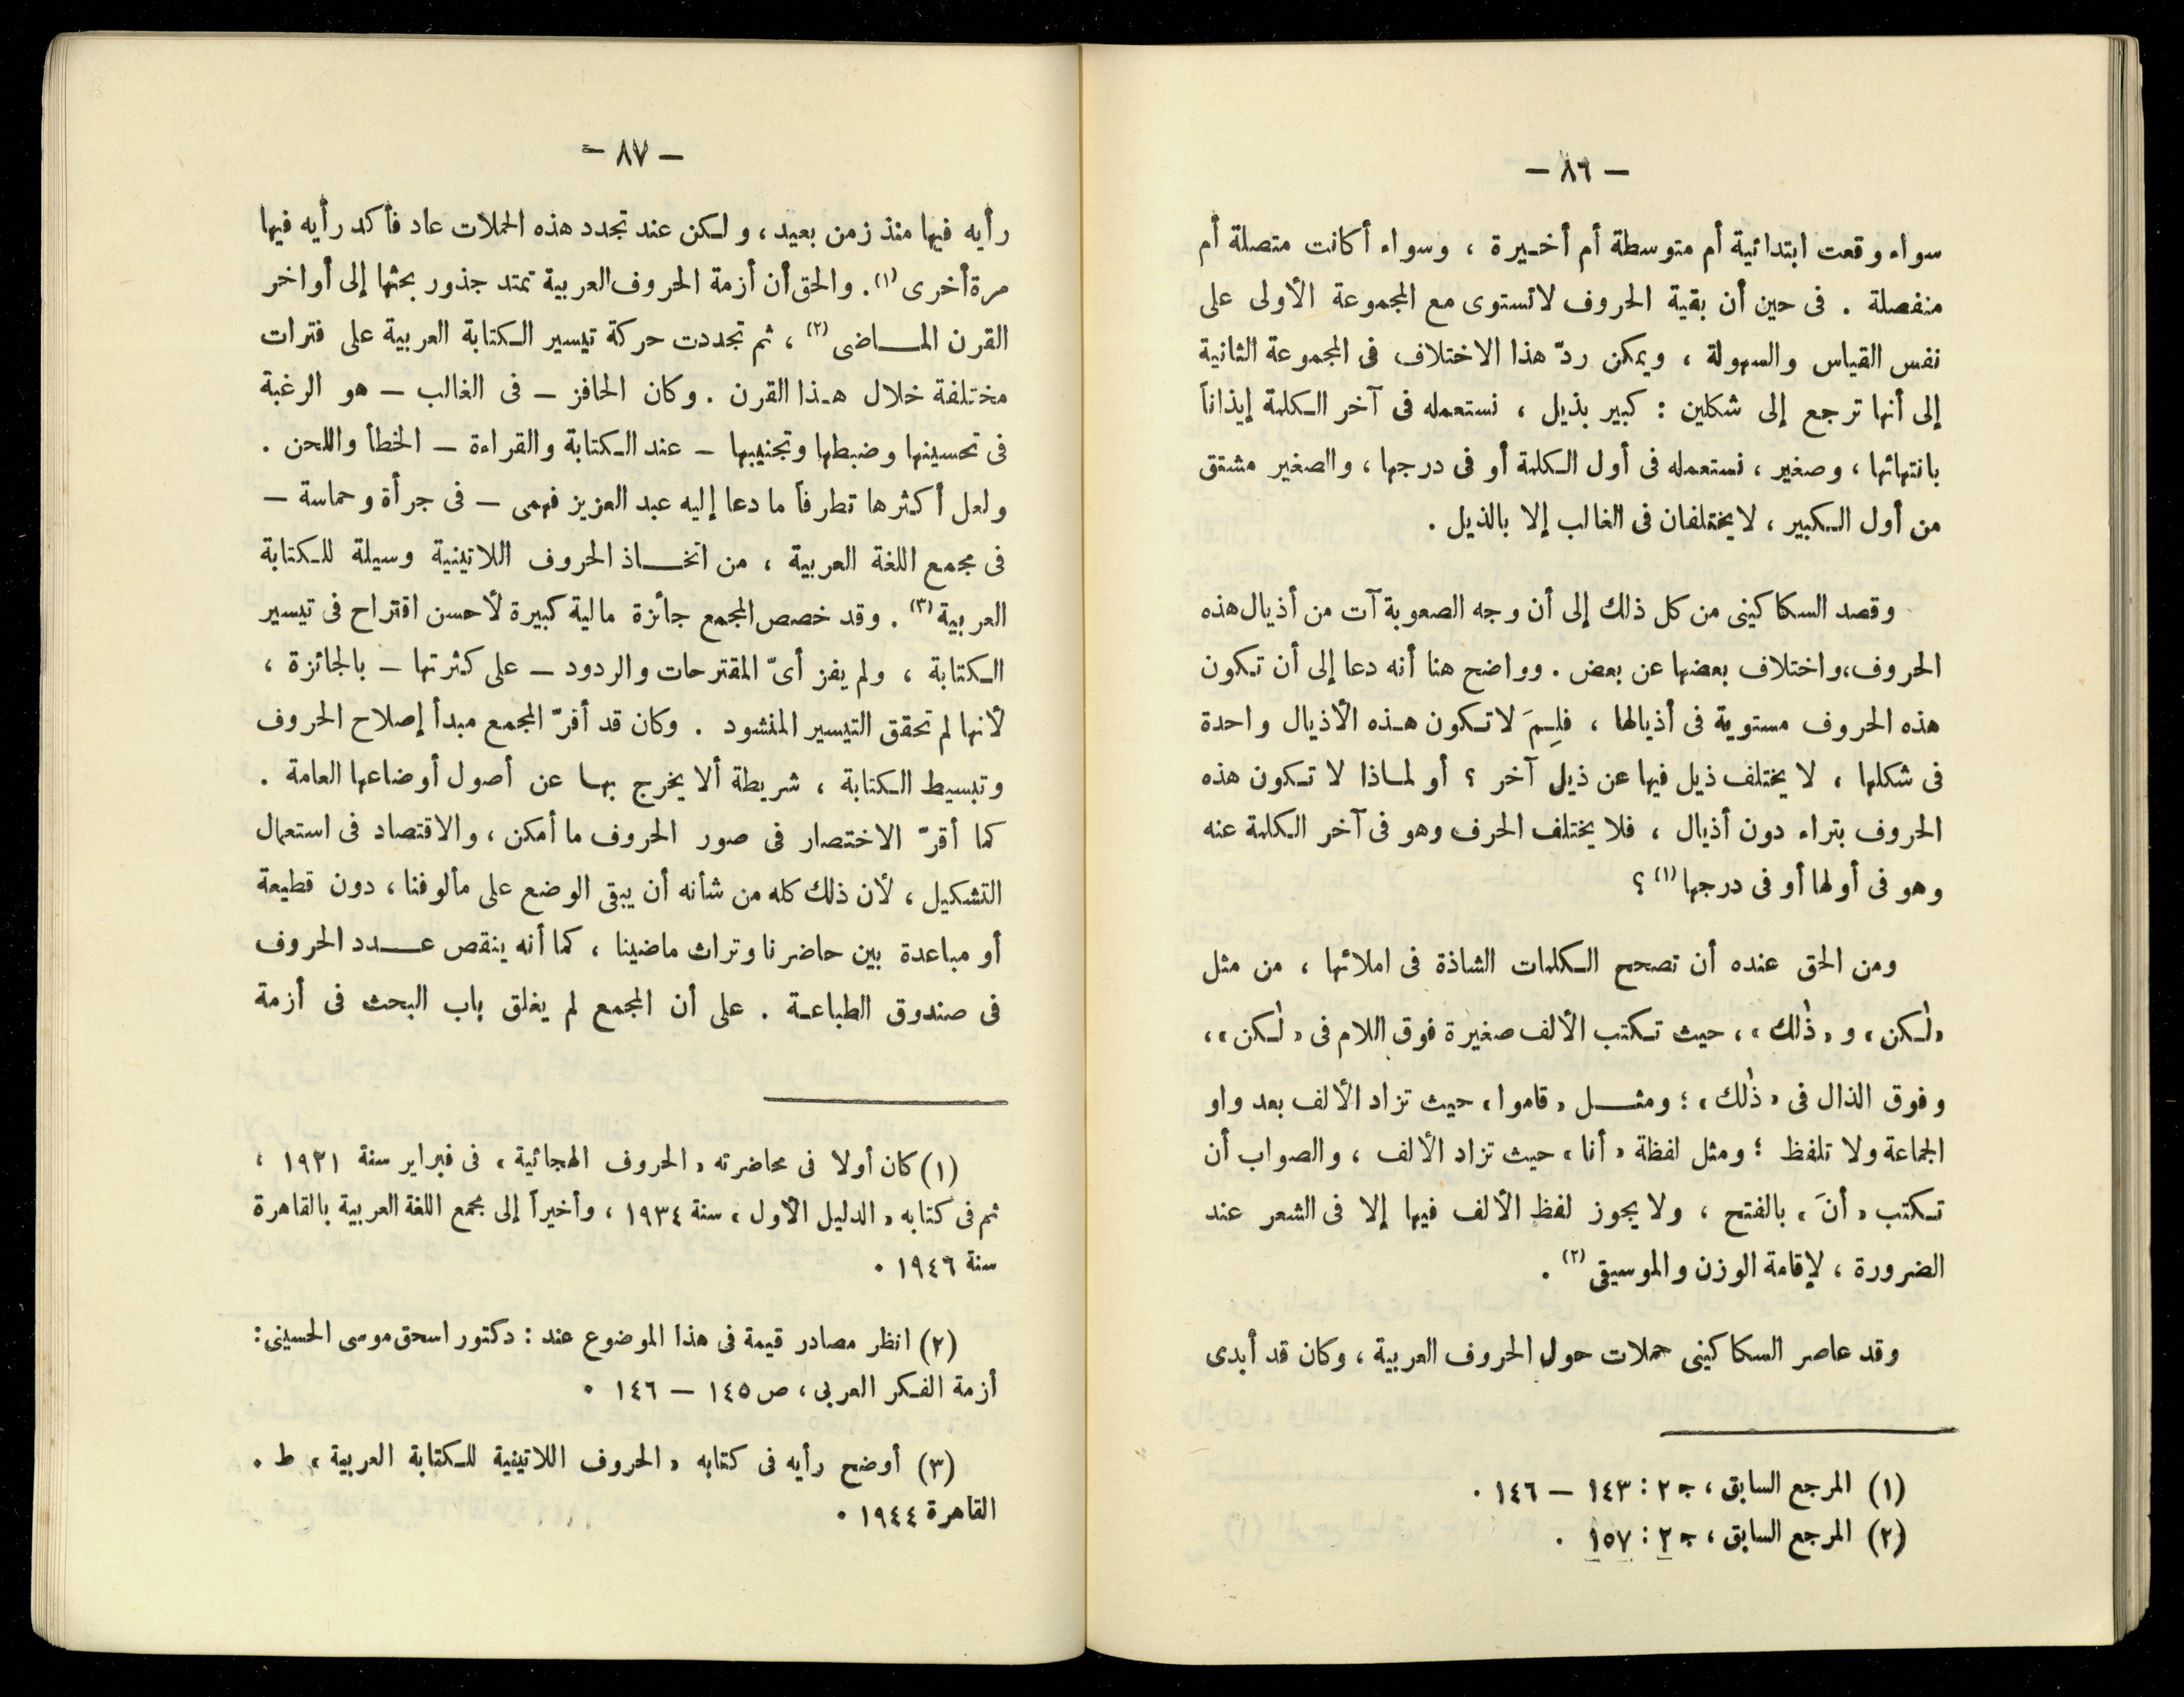 — ٨٦ —
سواء وقعت ابتدائية أم متوسطة أم أخيرة ، وسواء أكانت متصلة أم
منفصلة . فى حين أن بقية الحروف لاتستوى مع المجموعة الأولى على
نفس القياس والسهولة ، ويمكن ردّ هذا الاختلاف فى المجموعة الثانية
إلى أنها ترجع إلى شكلين : كبير بذيل ، نستعمله فى آخر الكلمة إيذاناً
بانتهائها ، وصغير ، نستعمله فى أول الكلمة أو فى درجها ، والصغير مشتق
من أول الكبير ، لايختلفان فى الغالب إلا بالذيل .
وقصد السكاكينى من كل ذلك إلى أن وجه الصعوبة آت من أذيال هذه
الحروف،واختلاف بعضها عن بعض . وواضح هنا أنه دعا إلى أن تكون
هذه الحروف مستوية فى أذيالها ، فلِمَ لاتكون هذه الأذيال واحدة
فى شكلها ، لا يختلف ذيل فيها عن ذيل آخر ؟ أو لماذا لا تكون هذه
الحروف بتراء دون أذيال ، فلا يختلف الحرف وهو فى آخر الكلمة عنه
وهو فى أولها أو فى درجها (١) ؟
ومن الحق عنده أن تصحح الكلمات الشاذة فى املائها ، من مثل
«لٰكن» و «ذٰلك» ، حيث تكتب الألف صغيرة فوق اللام فى «لٰكن» ،
وفوق الذال فى «ذٰلك» ؛ ومثل «قاموا» حيث تزاد الألف بعد واو
الجماعة ولا تلفظ ؛ ومثل لفظة «أنا» حيث تزاد الألف ، والصواب أن
تكتب «أنَ» بالفتح ، ولا يجوز لفظ الألف فيها إلا فى الشعر عند
الضرورة ، لإقامة الوزن والموسيقى (٢) .
وقد عاصر السكاكينى حملات حول الحروف العربية ، وكان قد أبدى
(١) المرجع السابق ، ج٢ : ١٤٣ — ١٤٦ .
(٢) المرجع السابق ، ج٢ : ١٥٧ .
— ٨٧ —
رأيه فيها منذ زمن بعيد ، ولكن عند تجدد هذه الحملات عاد فأكد رأيه فيها
مرة أخرى (١) . والحق أن أزمة الحروف العربية تمتد جذور بحثها إلى أواخر
القرن الماضى (٢) ، ثم تجددت حركة تيسير الكتابة العربية على فترات
مختلفة خلال هذا القرن . وكان الحافز — فى الغالب — هو الرغبة
فى تحسينها وضبطها وتجنيبها — عند الكتابة والقراءة — الخطأ واللحن .
ولعل أكثرها تطرفاً ما دعا إليه عبد العزيز فهمى — فى جرأة وحماسة —
فى مجمع اللغة العربية ، من اتخاذ الحروف اللاتينية وسيلة للكتابة
العربية (٣) . وقد خصص المجمع جائزة مالية كبيرة لأحسن اقتراح فى تيسير
الكتابة ، ولم يفز أىّ المقترحات والردود — على كثرتها — بالجائزة ،
لأنها لم تحقق التيسير المنشود . وكان قد أقرّ المجمع مبدأ إصلاح الحروف
وتبسيط الكتابة ، شريطة ألا يخرج بها عن أصول أوضاعها العامة .
كما أقرّ الاختصار فى صور الحروف ما أمكن ، والاقتصاد فى استعمال
التشكيل ، لأن ذلك كله من شأنه أن يبقى الوضع على مألوفنا ، دون قطيعة
أو مباعدة بين حاضرنا وتراث ماضينا ، كما أنه ينقص عدد الحروف
فى صندوق الطباعة . على أن المجمع لم يغلق باب البحث فى أزمة
(١) كان أولا فى محاضرته «الحروف الهجائية» فى فبراير سنة ١٩٢١ ،
ثم فى كتابه «الدليل الأول» سنة ١٩٣٤ ، وأخيراً إلى مجمع اللغة العربية بالقاهرة
سنة ١٩٤٦ .
(٢) انظر مصادر قيمة فى هذا الموضوع عند : دكتور اسحق موسى الحسينى :
أزمة الفكر العربى ، ص ١٤٥ — ١٤٦ .
(٣) أوضح رأيه فى كتابه «الحروف اللاتينية للكتابة العربية» ط .
القاهرة ١٩٤٤ .